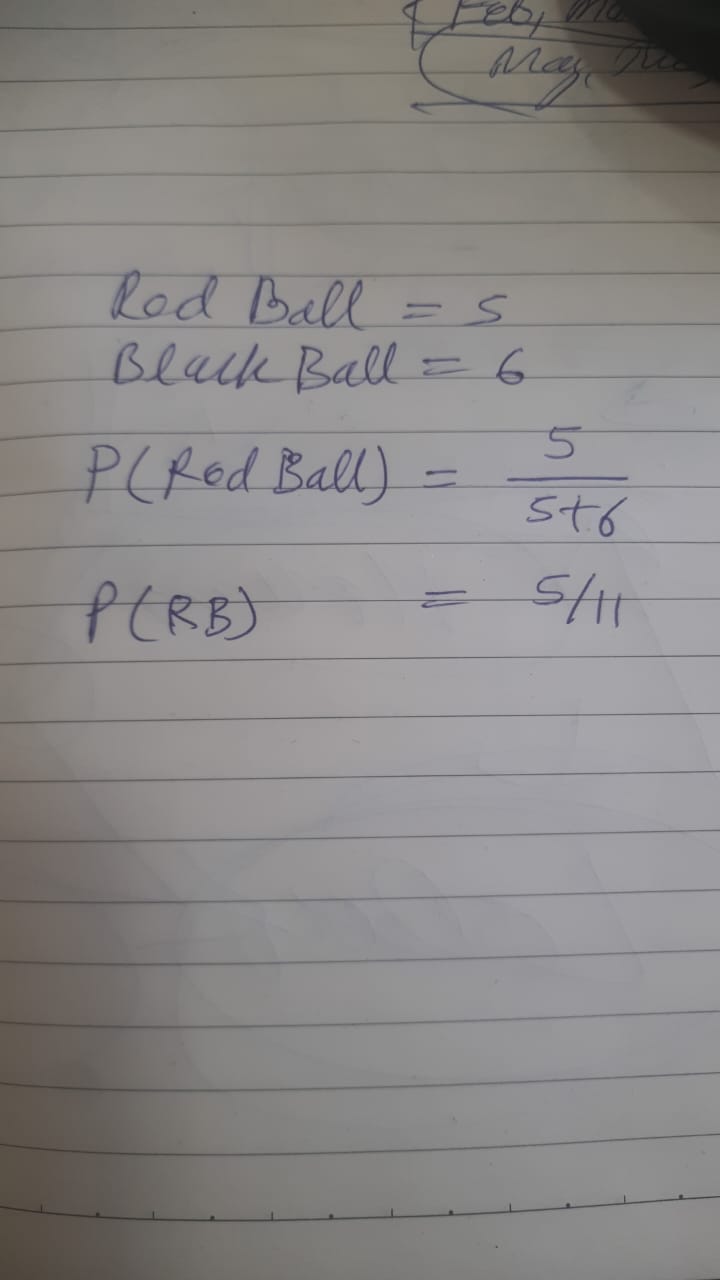 Feb,
May,
Red Ball = 5
Black Ball = 6
P(Red Ball) = 5/5+6
P(RB) = 5/11